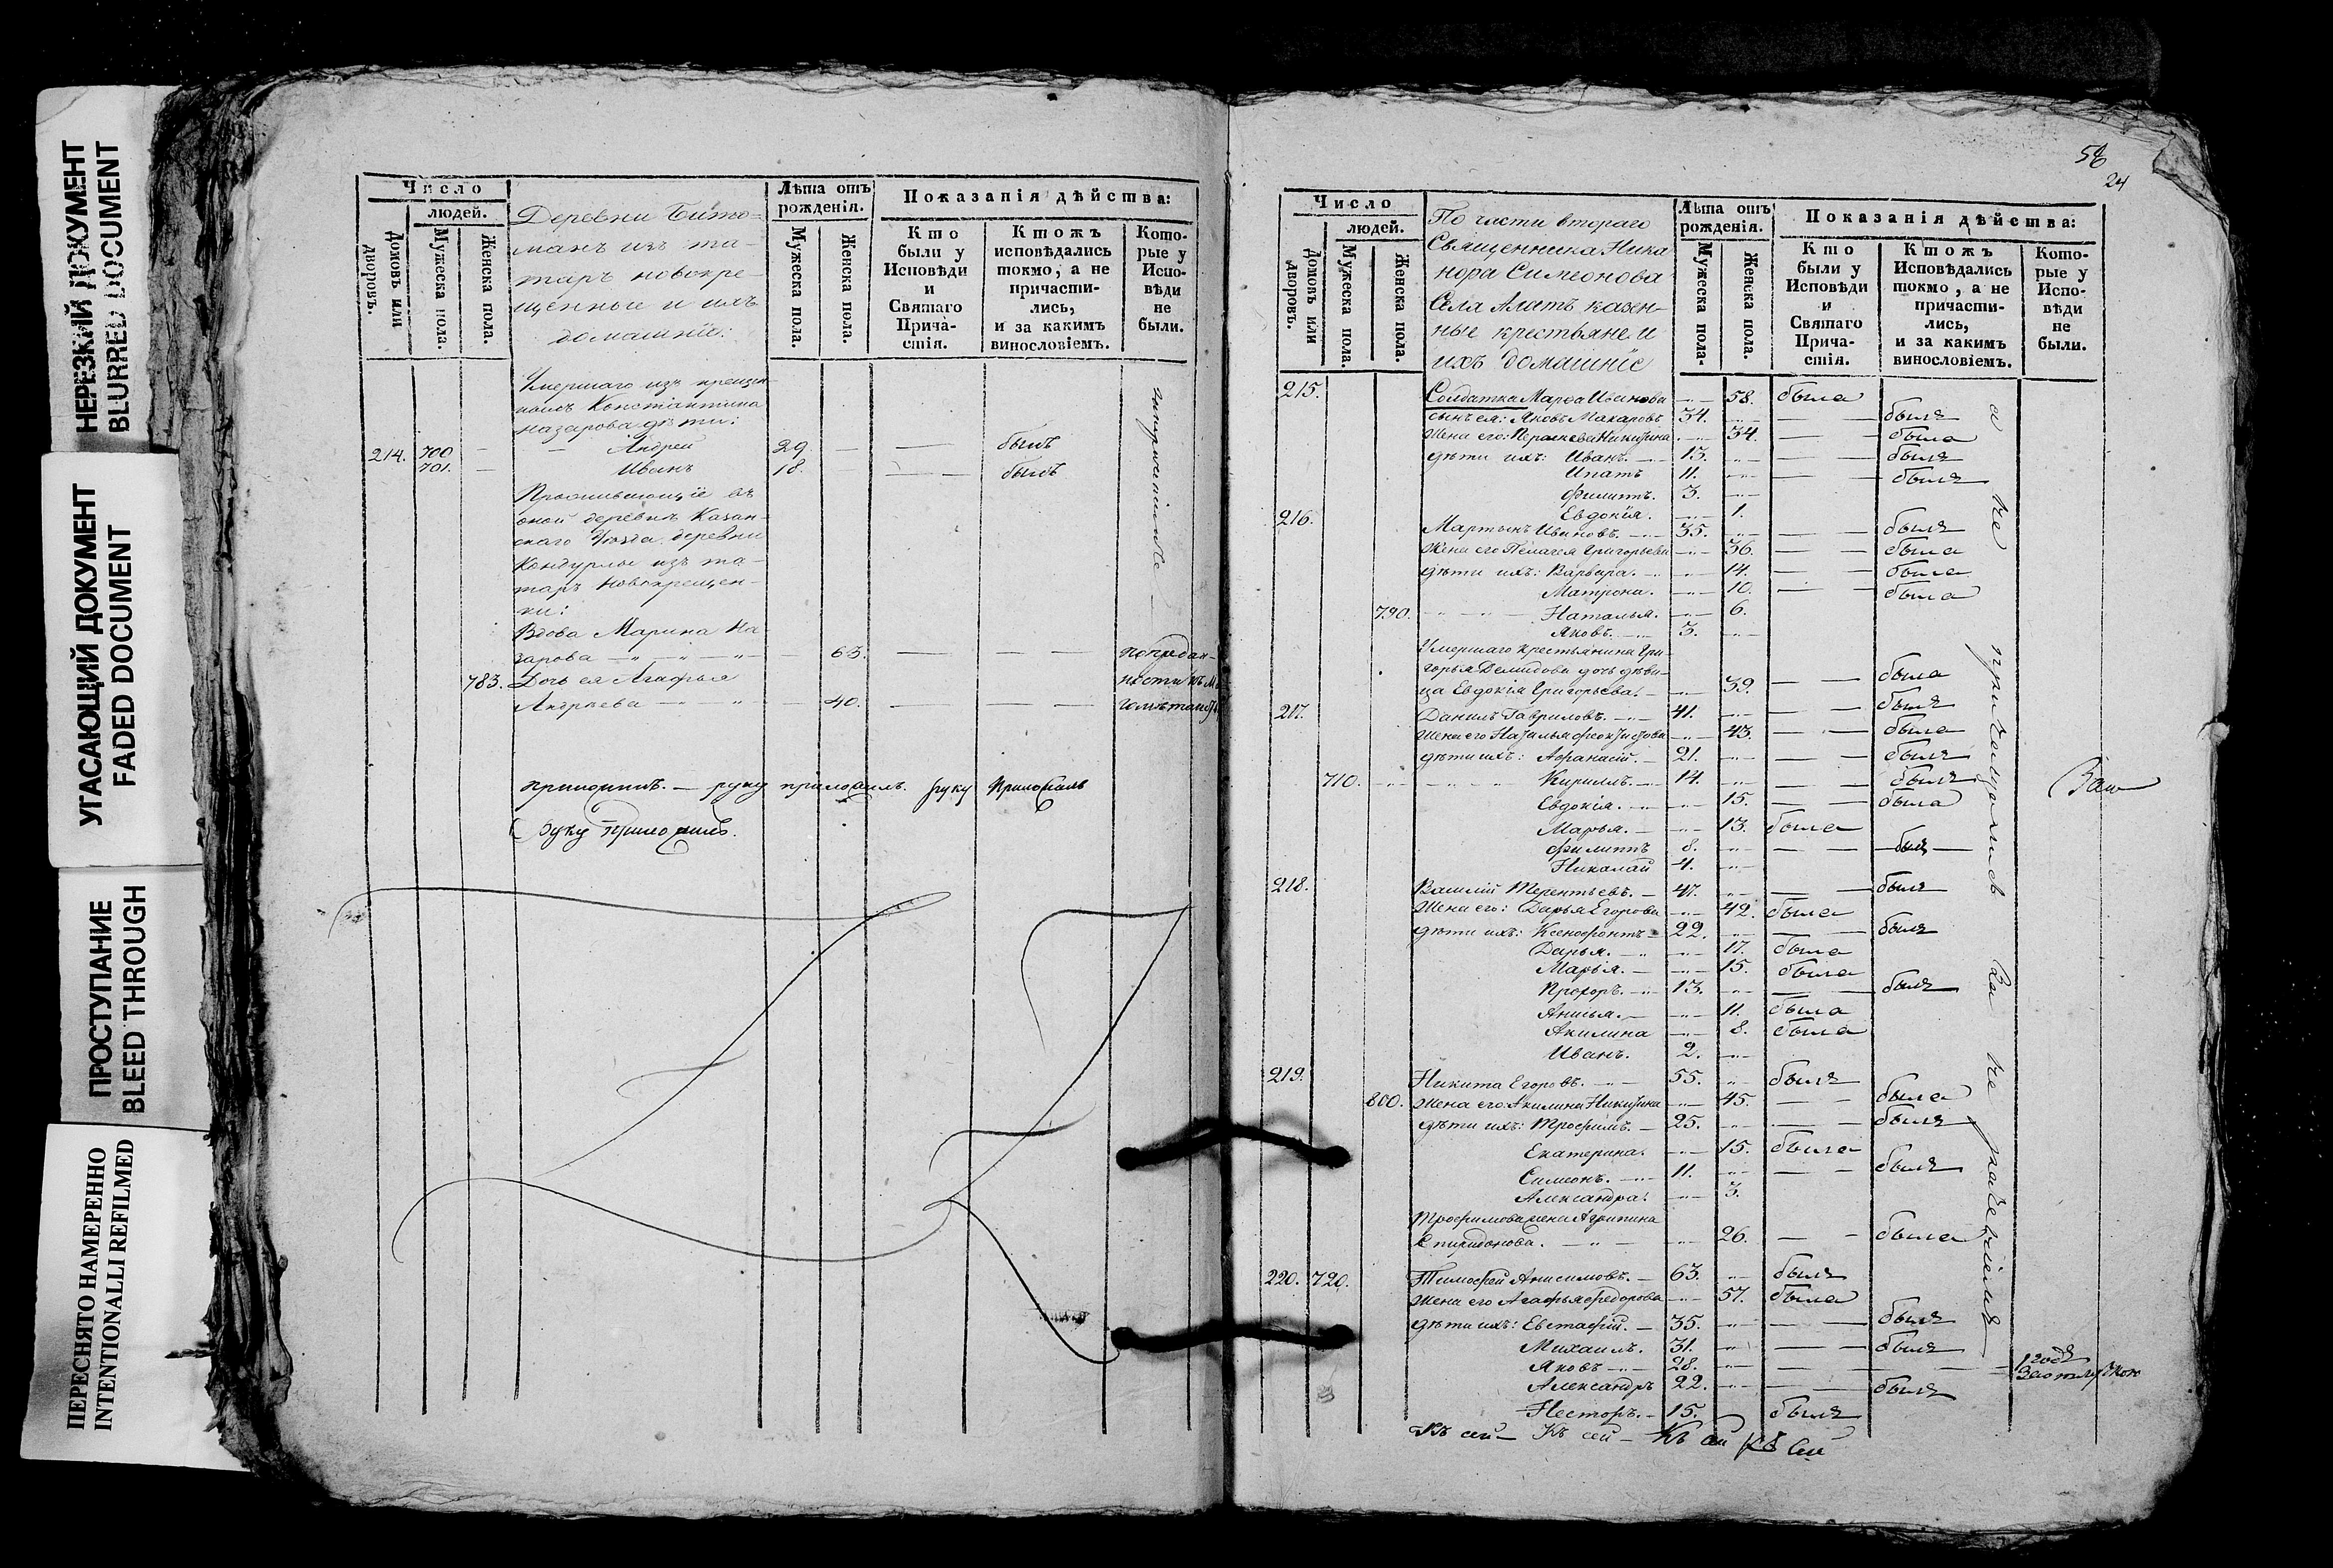 НЕРЕЗКИЙ ДОКУМЕНТ
BLURRED DOCUMENT
УГАСАЮЩИЙ ДОКУМЕНТ
FADED DOCUMENT
ПРОСТУПАНИЕ
BLEED THROUGH
ПЕРЕСНЯТО НАМЕРЕННО
INTENTIONALLI REFILMED
Число
людей.
Домовъ или дворовъ.
Мужеска пола.
Женска пола.
Деревни
манъ изъ та-
таръ новокре-
щенные и ихъ
домашніе:
Лѣта отъ рожденія.
Мужеска пола.
Женска пола.
Показанія дѣйства:
Кто были у Исповѣди и Святаго Прича-стія.
Ктожъ исповѣдались токмо, а не причасти-лись, и за какимъ винословіемъ.
Кото-рые у Испо-вѣди не были.
Умершаго изъ
Константина
Назарова дѣти:
214. 700 — Андрей 29. — — былъ
701. — Иванъ 18. — — былъ
Проживающіе въ
оной деревнѣ Казан-
скаго уѣзда деревни
изъ та-
таръ новокрещен-
ки:
Вдова Марина На-
зарова — 63. — —
783. Дочь ея Агафья
Андреева — 40. — —
приложилъ. — руку приложилъ. руку приложилъ
руку приложилъ.
58
24
Число
людей.
Домовъ или дворовъ.
Мужеска пола.
Женска пола.
По части втораго
Священника Ника
нора Симеонова
Села Алатъ казен-
ные крестьяне и
ихъ домашніе
Лѣта отъ рожденія.
Мужеска пола.
Женска пола.
Показанія дѣйства:
Кто были у Исповѣди и Святаго Прича-стія.
Ктожъ Исповѣдались токмо, а не причасти-лись, и за какимъ винословіемъ.
Кото-рые у Испо-вѣди не были.
215. Солдатка Марѳа Иванова — 58. была
сынъ ея: Яковъ Макаровъ 34. — — былъ
Жена его: Никитина — 34. — — была
дѣти ихъ: Иванъ. — 13. — — былъ
Ипатъ 11. — — былъ
Филиппъ. 3. —
Евдокія. — 1.
216. Мартынъ Ивановъ. — 35. — — былъ
Жена его Пелагея Григорьева — 36. — — была
дѣти ихъ: Варвара. — 14. — — была
Матрона. — 10. — — была
790. Наталья. — 6.
Яковъ. — 3. —
Умершаго крестьянина Гри-
горья Демидова дочь дѣви-
ца Евдокія Григорьева. — 39. — — была
217. Данилъ Гавриловъ. — 41. — — былъ
Жена его Наталья — 43. — — была
дѣти ихъ: Афанасій. — 21. — — былъ
710. Кирилъ. — 14. — — былъ
Евдокія. — 15. — — была
Марья. — 13. была
Филиппъ 8. — — былъ
Николай 4. —
218. Василій Терентьевъ. — 47. — — былъ
Жена его: Дарья Егорова — 42. была
дѣти ихъ: Ксенофонтъ — 22. — — былъ
Дарья. — 17. была
Марія. — 15. была
Прохоръ. — 13. — — былъ
Анисья. — 11. была
Акилина — 8. была
Иванъ. 2. —
219. Никита Егоровъ. — 55. — былъ
800. Жена его: Акилина Никитина — 45. — — была
дѣти ихъ: Трофимъ. — 25. — — былъ
Екатерина. — 15. была
Симеонъ. — 11. — — былъ
Александра. — 3.
Трофимова жена Агрипина
Спиридонова. — 26. — — была
220. 720. Тимофей Анисимовъ. — 63. — былъ
Жена его Агафья Федорова — 57. была
дѣти ихъ: Евстафій. — 35. — — былъ
Михаилъ. 31. — — былъ
Яковъ — 28. — — 1 годъ
Александръ 22. — — былъ
За отлучкою
Несторъ. — 15. былъ
Къ сей — Къ сей — Къ сей Къ сей